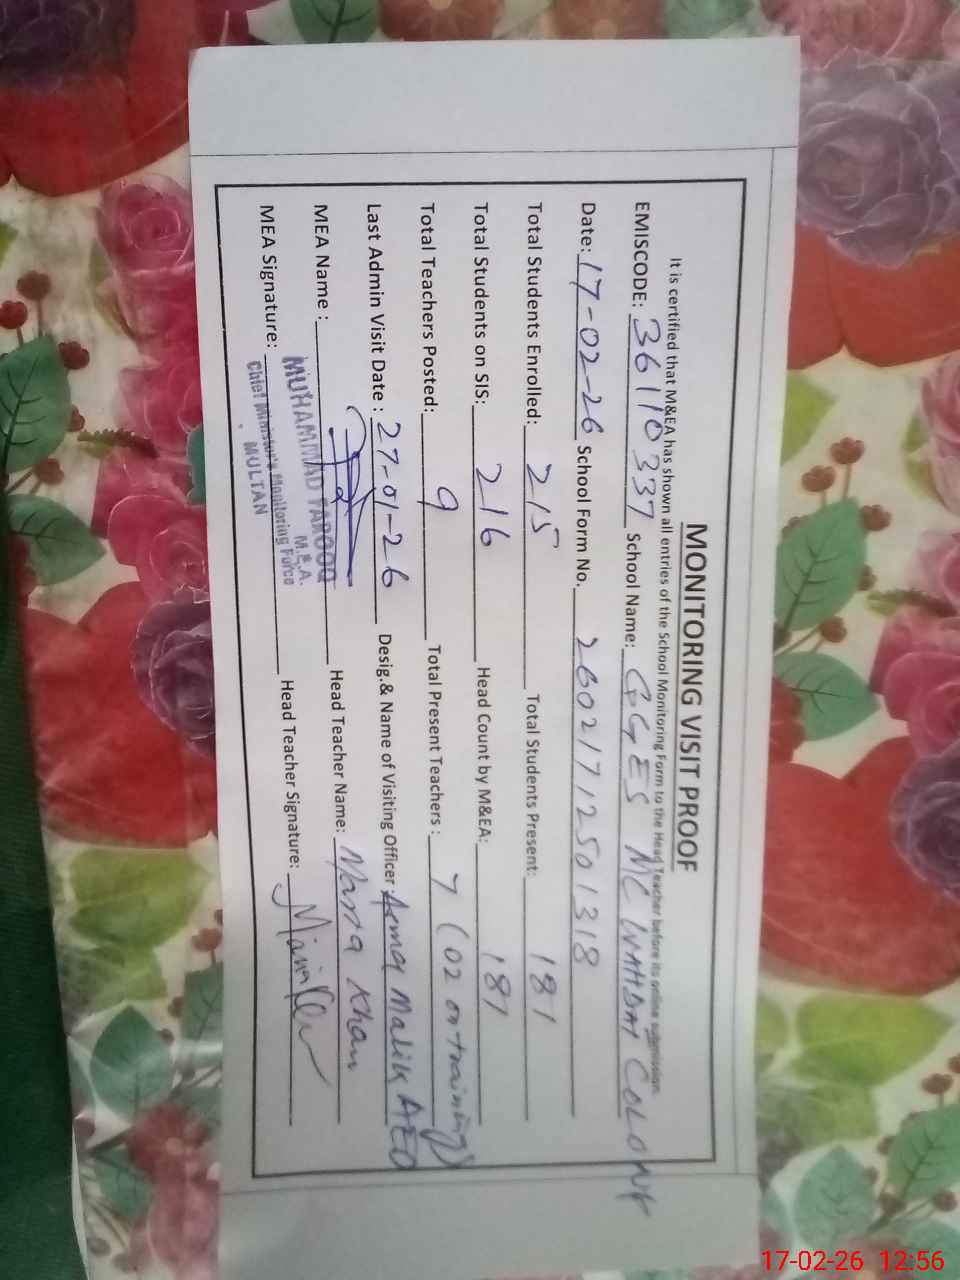 MONITORING VISIT PROOF
It is certified that M&EA has shown all entries of the School Monitoring Form to the Head Teacher before its online submission.
EMISCODE: 36110337 School Name: GGES MC WAHDAT COLONY
Date: 17-02-26 School Form No. 26021712501318
Total Students Enrolled: 215 Total Students Present: 181
Total Students on SIS: 216 Head Count by M&EA: 181
Total Teachers Posted: 9 Total Present Teachers : 7 (02 on training)
Last Admin Visit Date : 27-01-26 Desig.& Name of Visiting Officer Asma Malik AEO
MEA Name : Head Teacher Name: Khan
MUHAMMAD FAROOQ
M.E.A.
MEA Signature: Head Teacher Signature:
Chief Minister's Monitoring Force
MULTAN
17-02-26 12:56